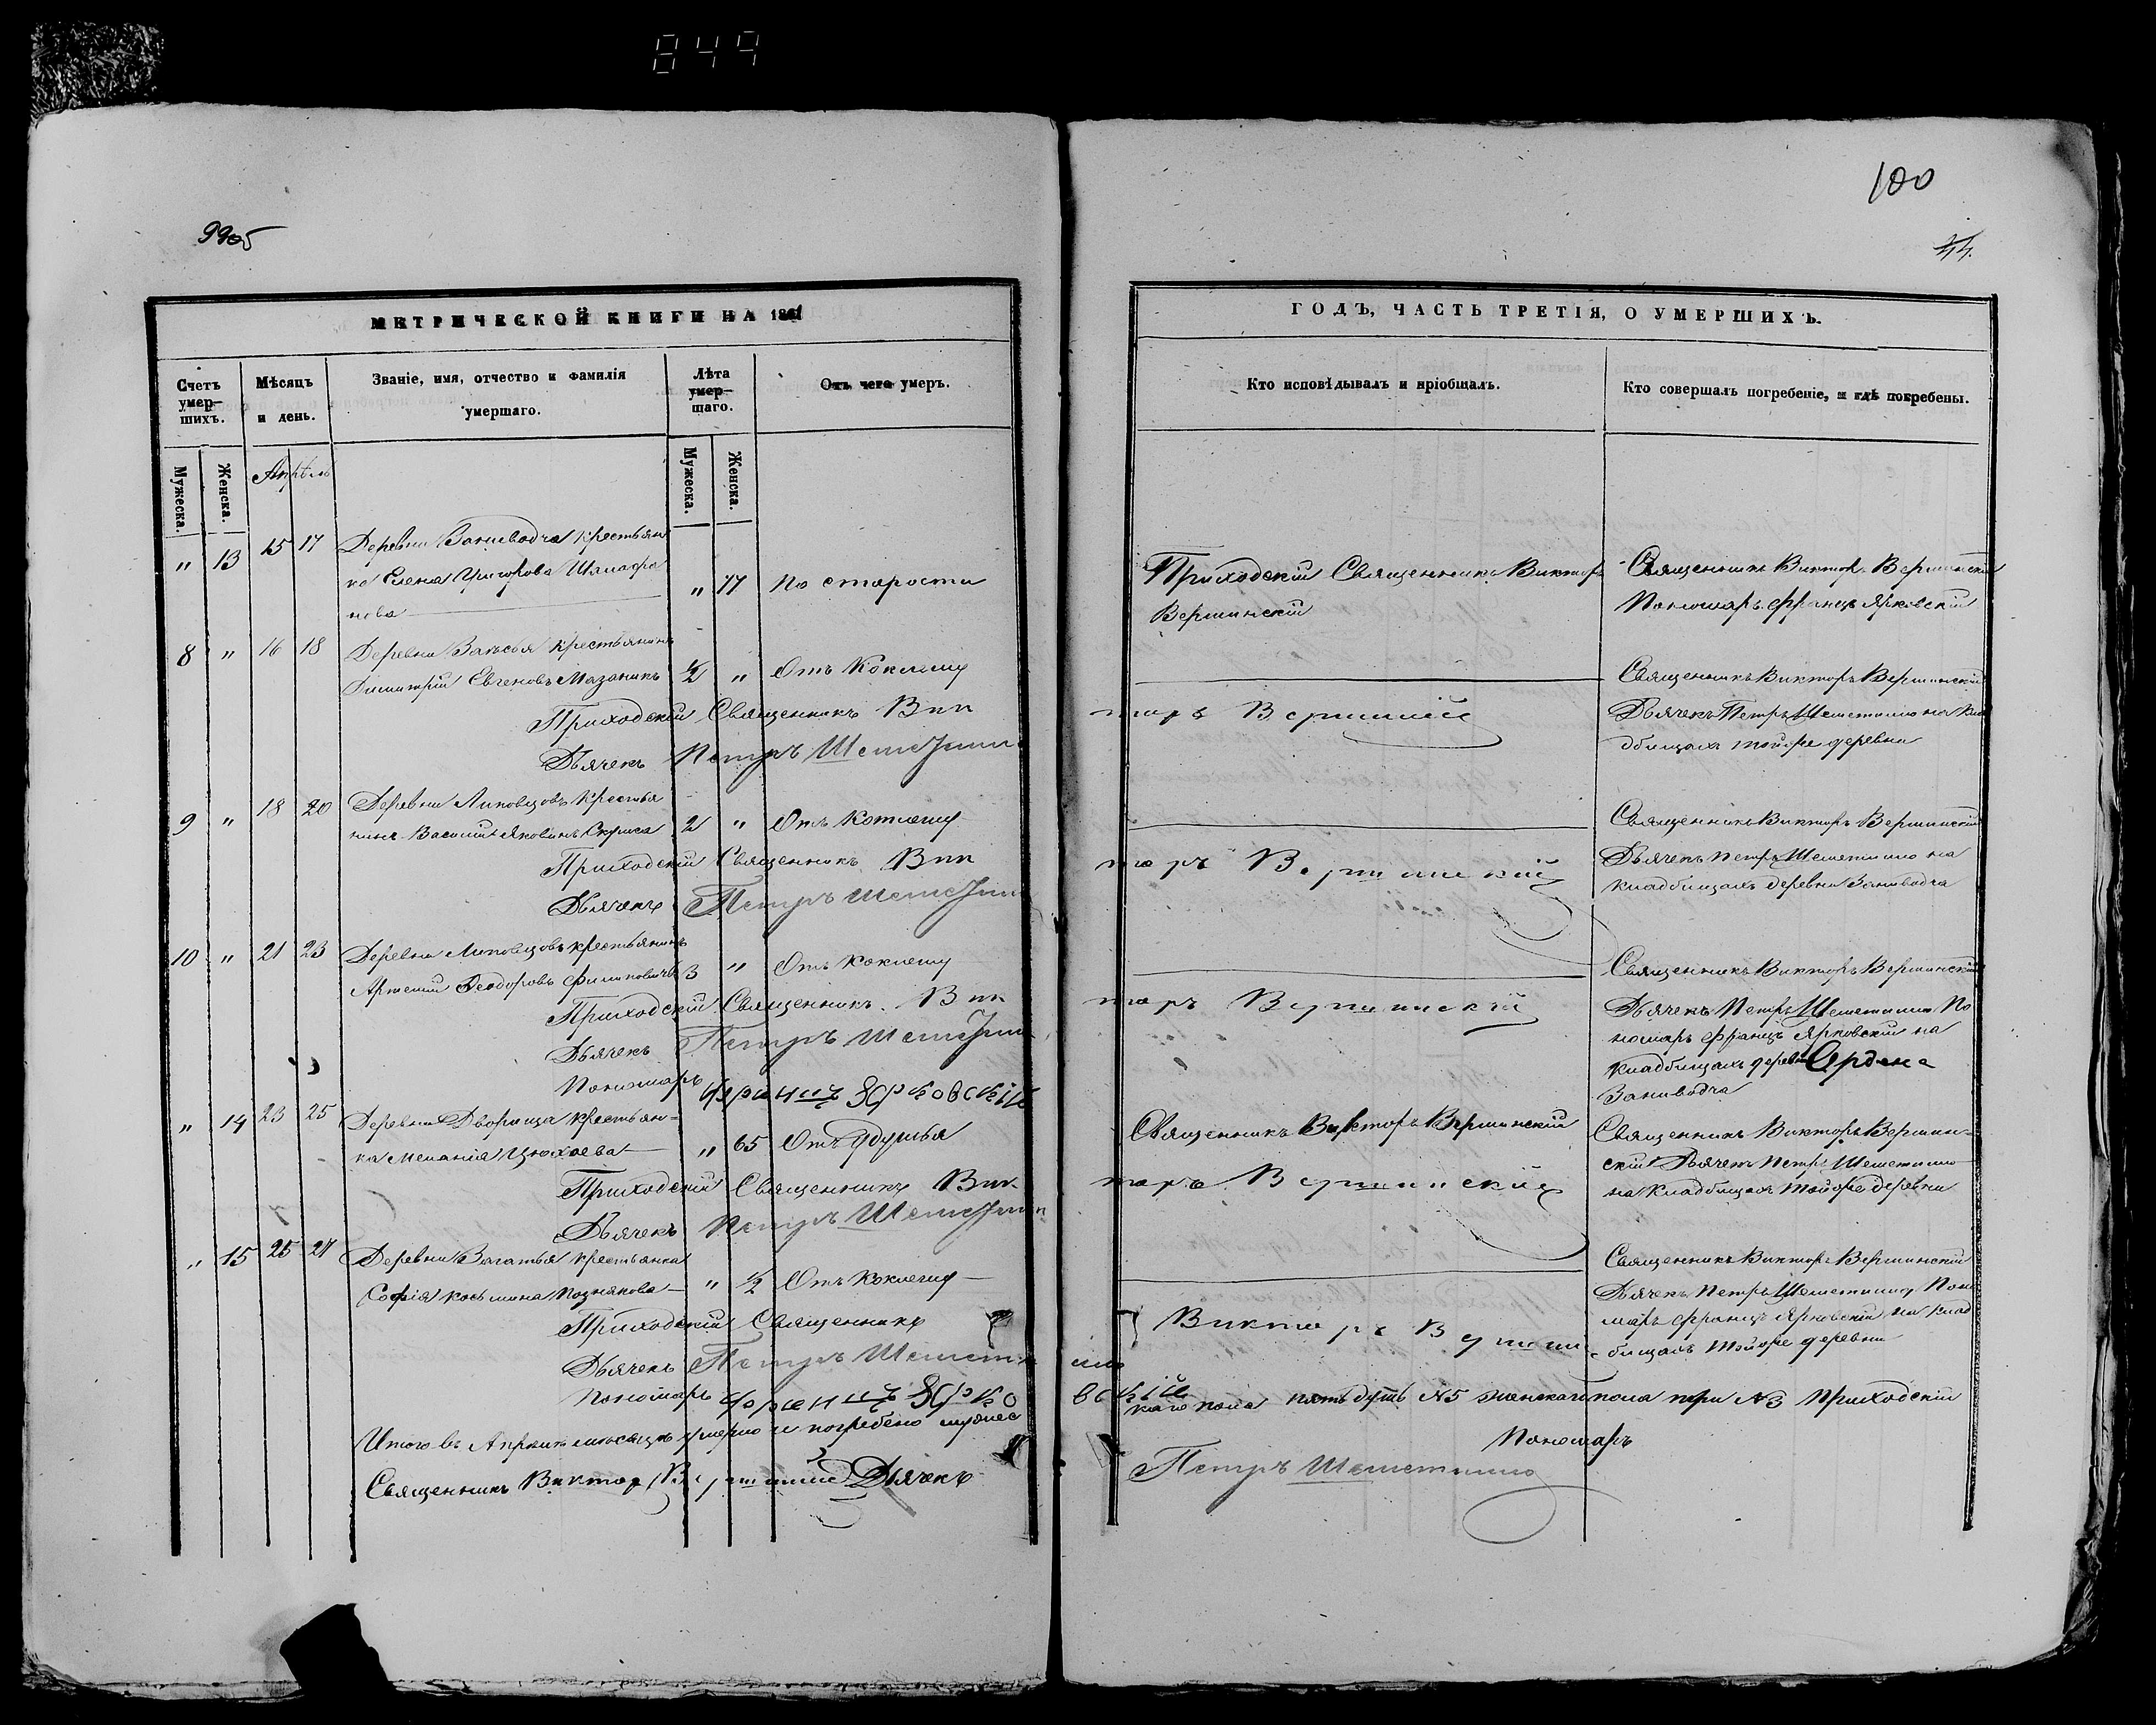 849
100
МЕТРИЧЕСКОЙ КНИГИ НА 1861
ГОДЪ, ЧАСТЬ ТРЕТІЯ, О УМЕРШИХЪ.
Счетъ умер-шихъ.
Мѣсяцъ и день.
Званіе, имя, отчество и фамилія умершаго.
Лѣта умер-шаго.
Отъ чего умеръ.
Кто исповѣдывалъ и пріобщалъ.
Кто совершалъ погребеніе, и гдѣ погребены.
Мужеска.
Женска.
Апрѣль
Мужеска.
Женска.
" 13 15 17 Деревни крестьян
ка Елена Григорова
нова
" 77 По старости
Приходскій Священникъ Викторъ
Вершинскій
Священникъ Викторъ Вершинскій
Пономарь Францъ Ярковскій
8 " 16 18 Деревни крестьянинъ
Димитрій Евгеновъ Мазаникъ ½ " Отъ Коклюшу
Священникъ Викторъ Вершинскій
Дьячекъ Петръ Шеметилло на кла
дбищахъ тойже деревни
Приходскій Священникъ Вик
торъ Вершинскій
Дьячекъ Петръ Шеметилло
9 " 18 20 Деревни Липовцовъ крестья
нинъ Василій Яковинъ 2 " Отъ Коклюшу
Священникъ Викторъ Вершинскій
Дьячекъ Петръ Шеметилло на
кладбищахъ деревни Заневодча
Приходскій Священникъ Вик
торъ Вершинскій
Дьячекъ Петръ Шеметилло
10 " 21 23 Деревни Липовцовъ крестьянинъ
Артемій Феодоровъ Филиповичъ 3 " Отъ Коклюшу
Священникъ Викторъ Вершинскій
Дьячекъ Петръ Шеметилло По
номарь Францъ Ярковскій на
кладбищахъ деревни
Заневодча
Приходскій Священникъ Вик
торъ Вершинскій
Дьячекъ Петръ Шеметилло
Пономарь Францъ Ярковскій
" 14 23 25 Деревни Дворища крестьян-
ка Меланія " 65 Отъ Удушья
Священникъ Викторъ Вершинскій
Священникъ Викторъ Вершин-
скій Дьячекъ Петръ Шеметилло
на кладбищахъ тойже деревни
Приходскій Священникъ Вик
торъ Вершинскій
Дьячекъ Петръ Шеметилло
" 15 25 27 Деревни крестьянка
Софія Косьмина Познякова " ½ Отъ Коклюшу
Священникъ Викторъ Вершинскій
Дьячекъ Петръ Шеметилло Поно
марь Францъ Ярковскій на клад
бищахъ тойже деревни
Приходскій Священникъ
Викторъ Вершин
Дьячекъ Петръ Шеметилло
Пономарь Францъ Ярковскій
Итого въ Апрѣлѣ мѣсяцѣ умерло и погребено мужес
каго пола пять душъ №5 женскаго пола три №3 Приходскій
Священникъ Викторъ Вершинскій Дьячекъ
Пономарь
Петръ Шеметилло